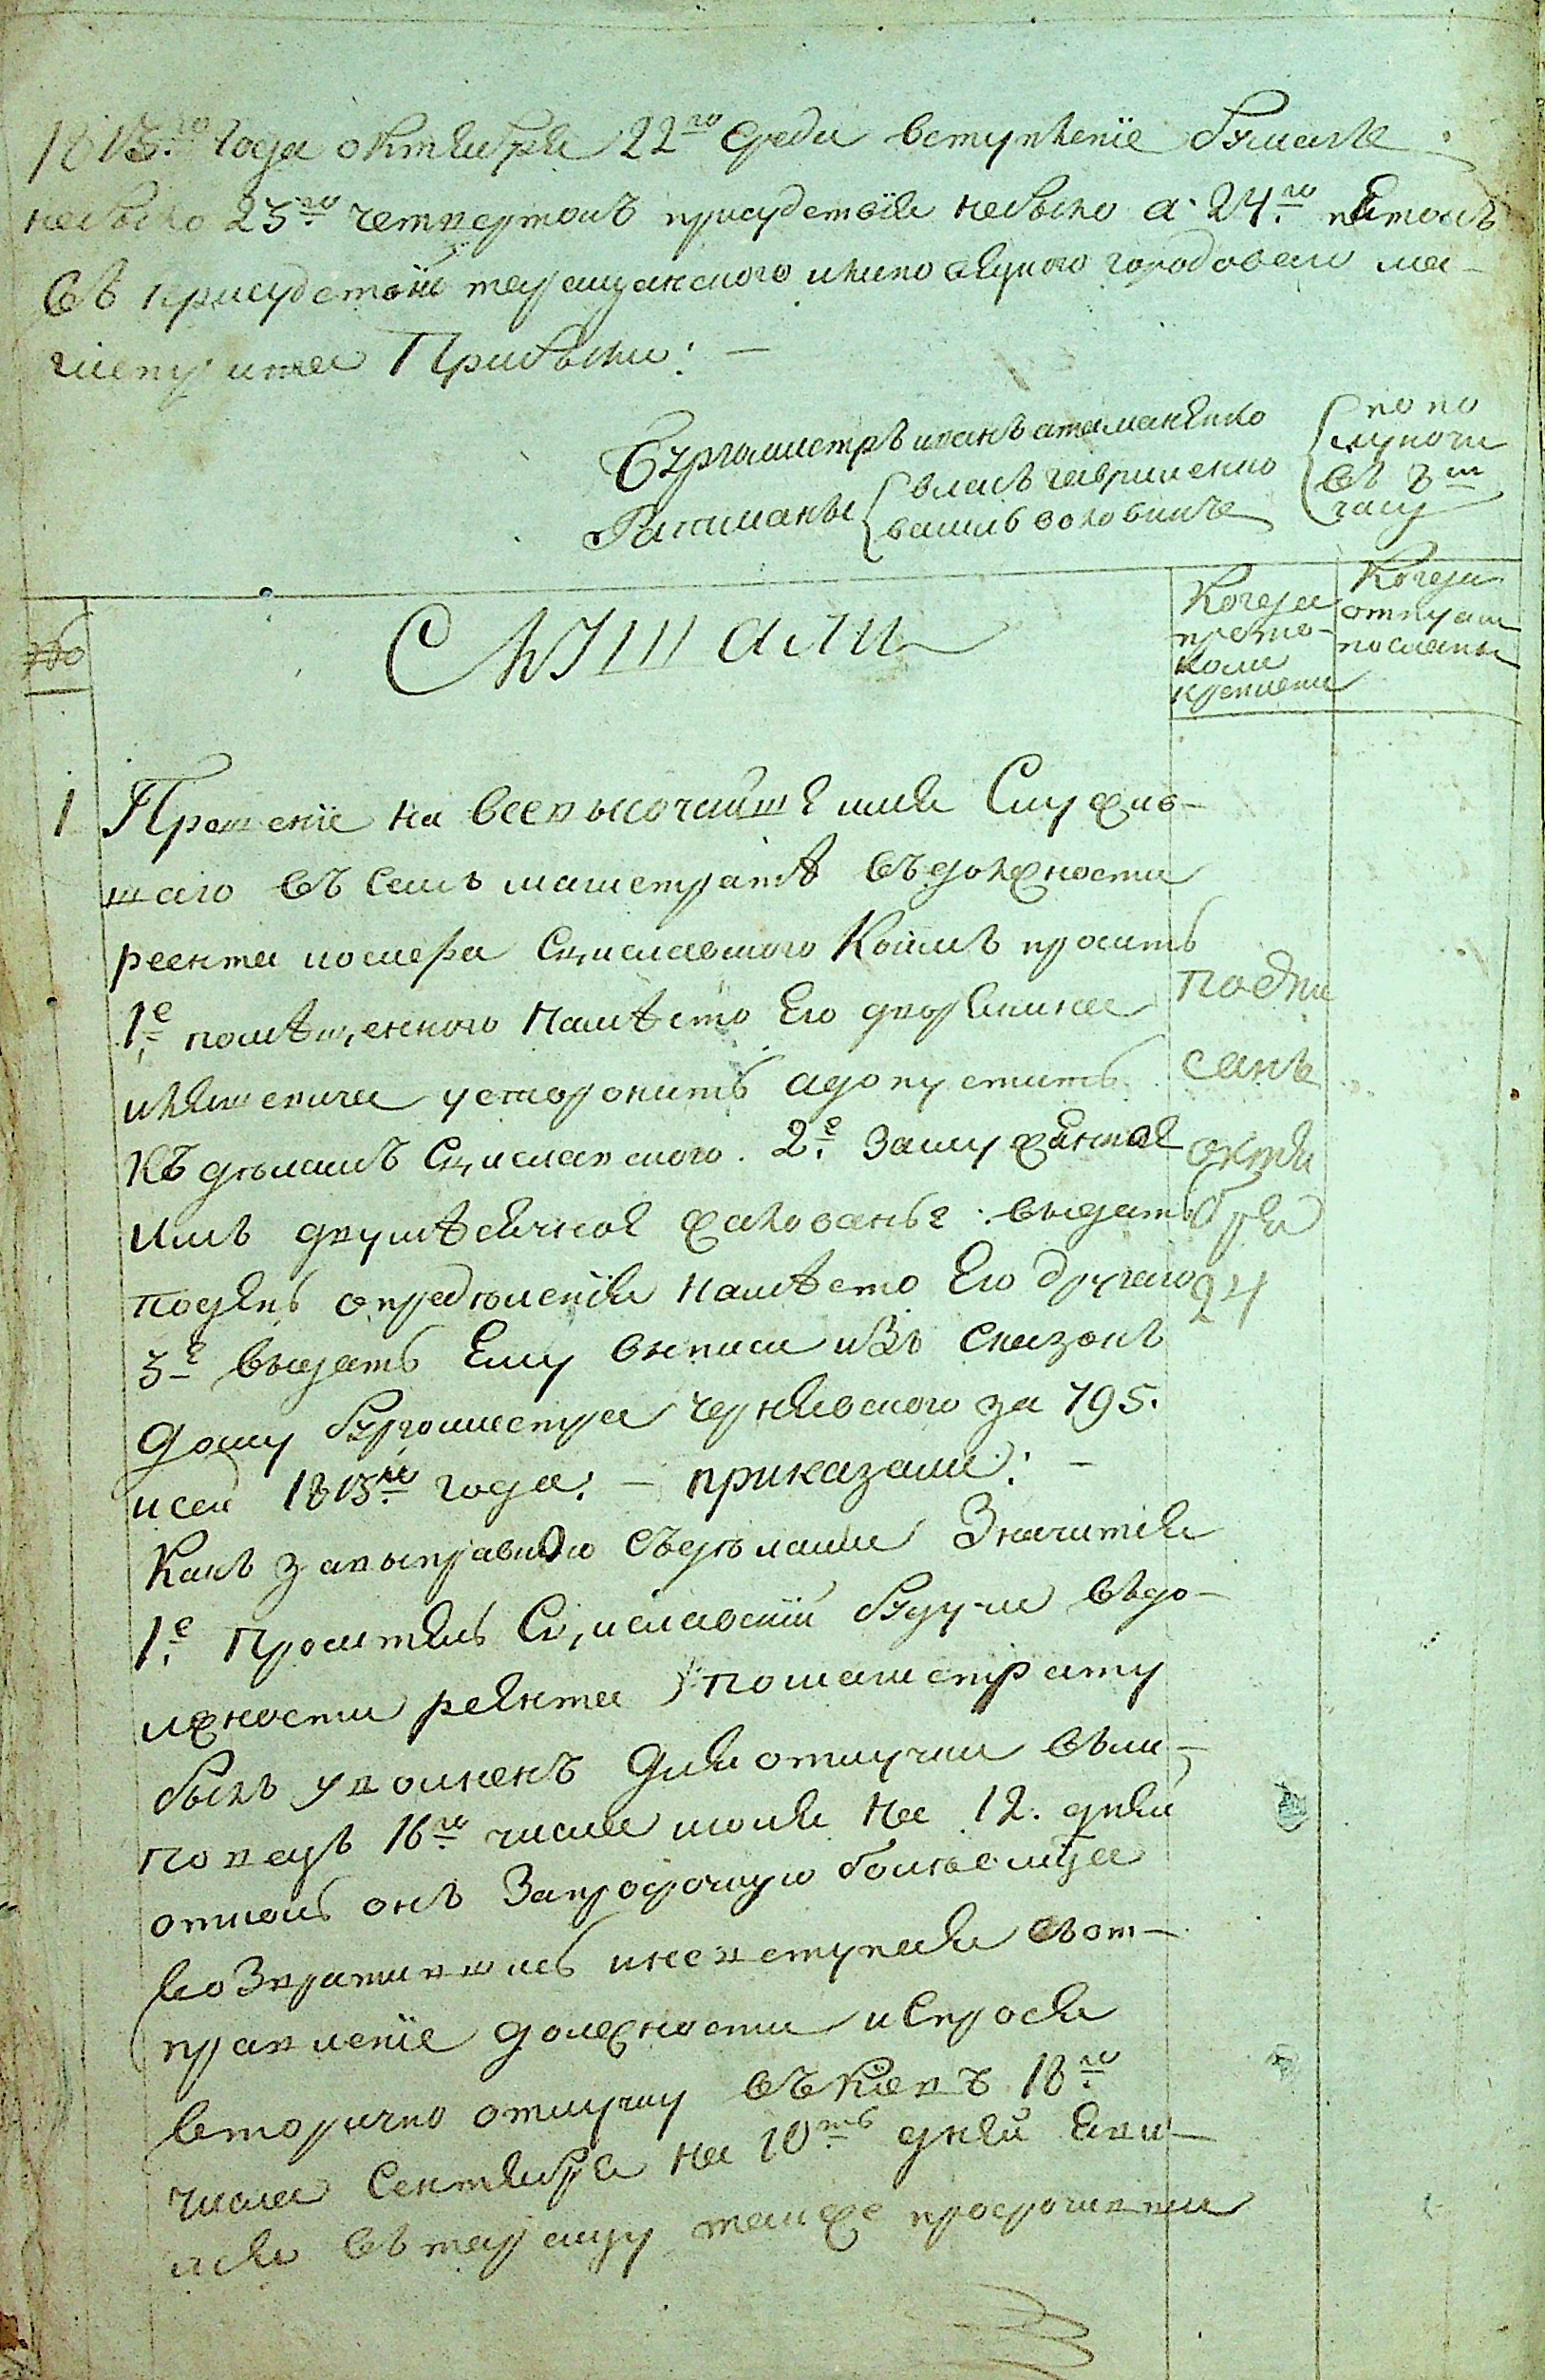 1813го года октября 22го среда вступленïе бумагъ
небыло 23го четвертокъ присудствïя небыло а 24го пятокъ
въ присудствïи таращанского городоваго ма-
гистрата Прибыли: —
Бургомистръ иванъ атаманенко
Ратсманы { власъ гавриленко
василь воловикъ
{ по по
луночи
въ 8м
часу
Слушали
Когда
прото-
колы
крепленъ
Когда
отпуски
посланы
1 Прошенïе на всевысочайшее имя Служив-
шаго въ семъ магистратѣ въдолжности
реента Сциславского коимъ просить
1е помѣщенного намѣсто Его дворянина
усторонить адопустить
къ дѣламъ Сциславского. 2е заслуженное
имъ двумѣсячное жалованье выдать
поднь опредѣленïя намѣсто Его другаго
3е выдать Ему выписи изъ сказокъ
дому бургомистра чернявского за 795.
исей 1813й года. — приказали: —
Какъ завыправкою съдѣлами Значитъ
1е Проситель Сциславскïй будучи въдо-
лжности реента помагистрату
былъ уволненъ для отлучки въли-
повецъ 16го числа июля на 12. дней
откол онъ Запросрочкую болѣемѣсяца
возвратившись иневступая въот-
правленïе должности ивпрося
вторично отлучку въкïевъ 18го
числа Сентября на 10ть дней яви-
лся въ таращу также просрочивши
подпи
санъ
октя
бря
24